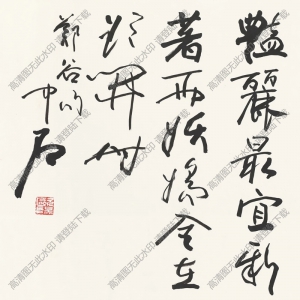 艷麗最宜新
著雨妖嬈全在
欲開時
鄭谷句
中石
高清图无此水印 请登陆下载